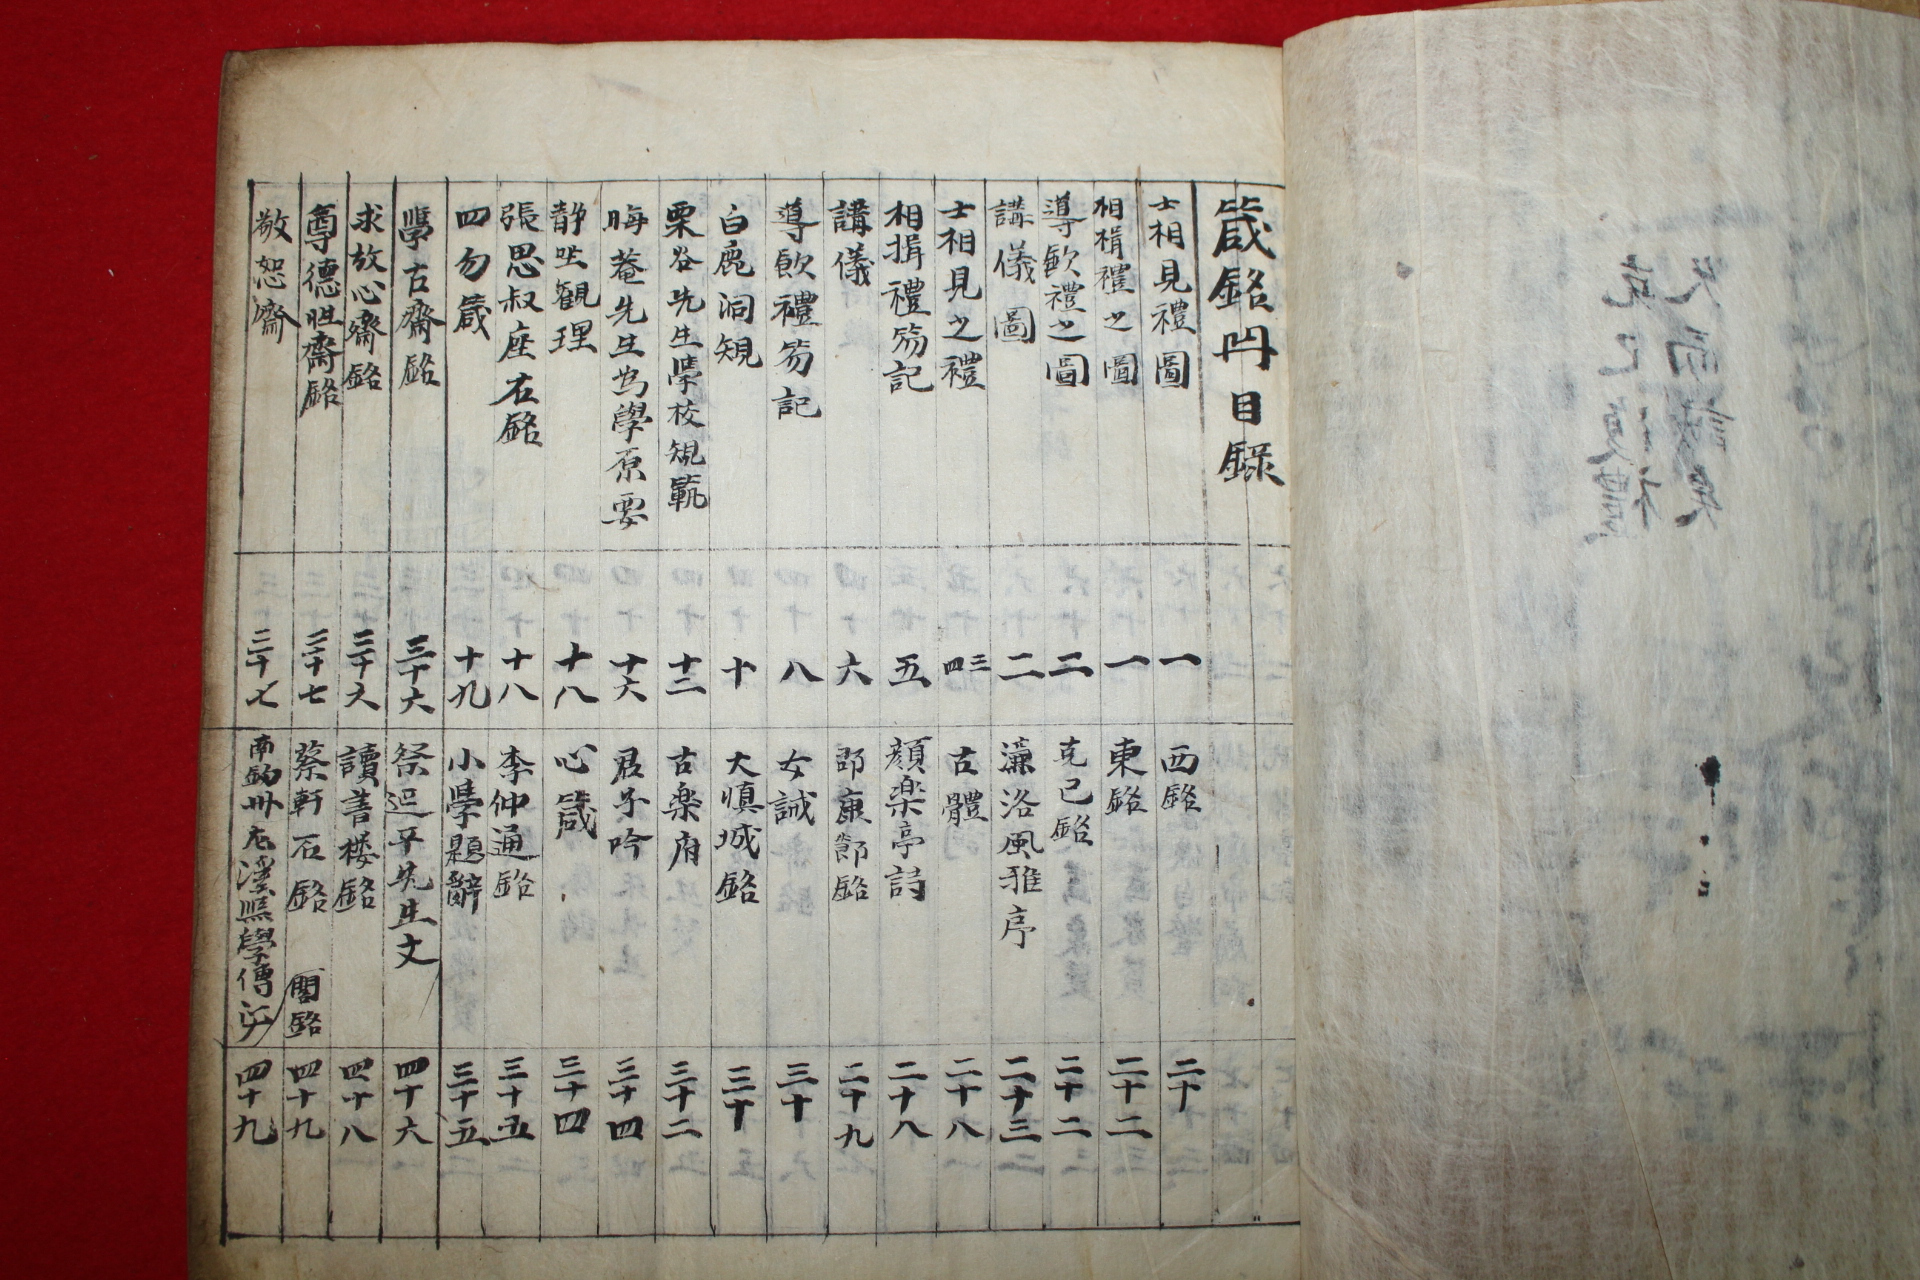 箴銘冊目録
士相見禮圖 一
相揖禮之圖 一
導飮禮之圖 二
講儀圖 二
士相見之禮 三四
相揖禮笏記 五
講儀 六
導飮禮笏記 八
白鹿洞規 十
栗谷先生學校規範 十二
晦菴先生爲學原要 十六
静坐觀理 十八
張思叔座右銘 十八
四勿箴 十九
學古齋銘 三十六
求放心齋銘 三十六
尊德性齋銘 三十七
敬恕齋 三十七
西銘 二十
東銘 二十二
克己銘 二十二
濂洛風雅序 二十三
古體 二十八
顔楽亭詩 二十八
邵康節銘 二十九
女誡 三十
大愼城銘 三十
古楽府 三十二
君子吟 三十四
心箴 三十四
李仲通銘 三十五
小學題辭 三十五
祭延平先生文 四十六
讀書楼銘 四十八
蔡軒石銘 閣銘 四十九
南 州 溪 學傳 四十九
久而誠矣
克己復禮